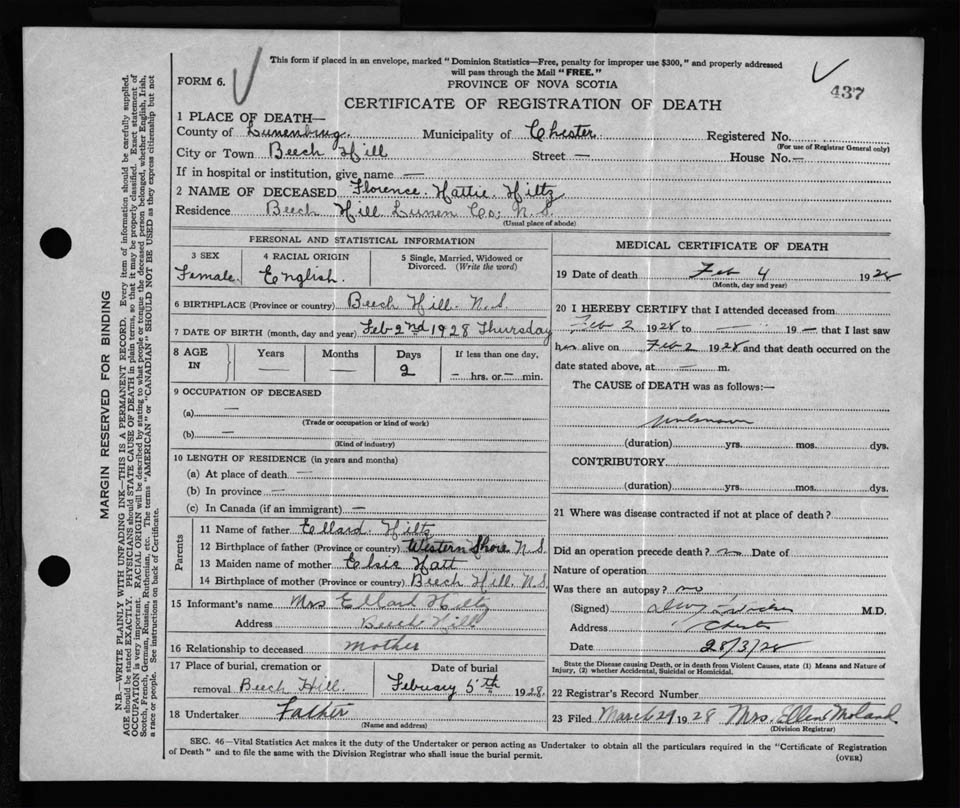 This form if placed in an envelope, marked "Dominion Statistics—Free, penalty for improper use $300," and properly addressed
will pass through the Mail "FREE."
FORM 6.
PROVINCE OF NOVA SCOTIA
437
CERTIFICATE OF REGISTRATION OF DEATH
1 PLACE OF DEATH—
County of Lunenburg Municipality of Chester Registered No.
(For use of Registrar General only)
City or Town Beech Hill Street — House No. —
If in hospital or institution, give name —
2 NAME OF DECEASED Florence Hattie Hiltz
Residence Beech Hill Lunen Co; N.S.
(Usual place of abode)
PERSONAL AND STATISTICAL INFORMATION
3 SEX 4 RACIAL ORIGIN 5 Single, Married, Widowed or
Divorced. (Write the word)
Female. English.
6 BIRTHPLACE (Province or country) Beech Hill. N.S
7 DATE OF BIRTH (month, day and year) Feb 2nd 1928 Thursday
8 AGE IN Years Months Days If less than one day,
— — 2 — hrs. or — min.
9 OCCUPATION OF DECEASED
(a) —
(Trade or occupation or kind of work)
(b) —
(Kind of industry)
10 LENGTH OF RESIDENCE (in years and months)
(a) At place of death —
(b) In province —
(c) In Canada (if an immigrant) —
Parents
11 Name of father Ellard. Hiltz
12 Birthplace of father (Province or country) Western Shore N.S.
13 Maiden name of mother Elsie Hatt
14 Birthplace of mother (Province or country) Beech Hill. N.S
15 Informant's name Mrs Ellard Hiltz
Address Beech Hill
16 Relationship to deceased mother
17 Place of burial, cremation or Date of burial
removal Beech Hill. February 5th 1928
18 Undertaker Father
(Name and address)
MEDICAL CERTIFICATE OF DEATH
19 Date of death Feb 4 1928
(Month, day and year)
20 I HEREBY CERTIFY that I attended deceased from
Feb 2 1928 to — 19 — that I last saw
her alive on Feb 2 1928 and that death occurred on the
date stated above, at — m.
The CAUSE of DEATH was as follows:—
unknown
(duration) yrs. mos. dys.
CONTRIBUTORY
(duration) yrs. mos. dys.
21 Where was disease contracted if not at place of death?
Did an operation precede death? no Date of
Nature of operation
Was there an autopsy? no
(Signed) M.D.
Address Chester
Date 28/3/28
State the Disease causing Death, or in death from Violent Causes, state (1) Means and Nature of
Injury, (2) whether Accidental, Suicidal or Homicidal.
22 Registrar's Record Number
23 Filed March 29 1928 Mrs. Ellen Moland
(Division Registrar)
SEC. 46—Vital Statistics Act makes it the duty of the Undertaker or person acting as Undertaker to obtain all the particulars required in the "Certificate of Registration
of Death" and to file the same with the Division Registrar who shall issue the burial permit.
(OVER)
MARGIN RESERVED FOR BINDING
N.B.—WRITE PLAINLY WITH UNFADING INK—THIS IS A PERMANENT RECORD. Every item of information should be carefully supplied.
AGE should be stated EXACTLY. PHYSICIANS should STATE CAUSE OF DEATH in plain terms, so that it may be properly classified. Exact statement of
OCCUPATION is very important. RACIAL ORIGIN will be described by stating to what people or tongue the deceased person belonged, whether English, Irish,
Scotch, French, German, Russian, Ruthenian, etc. The terms "AMERICAN" or "CANADIAN" SHOULD NOT BE USED as they express citizenship but not
a race or people. See instructions on back of Certificate.